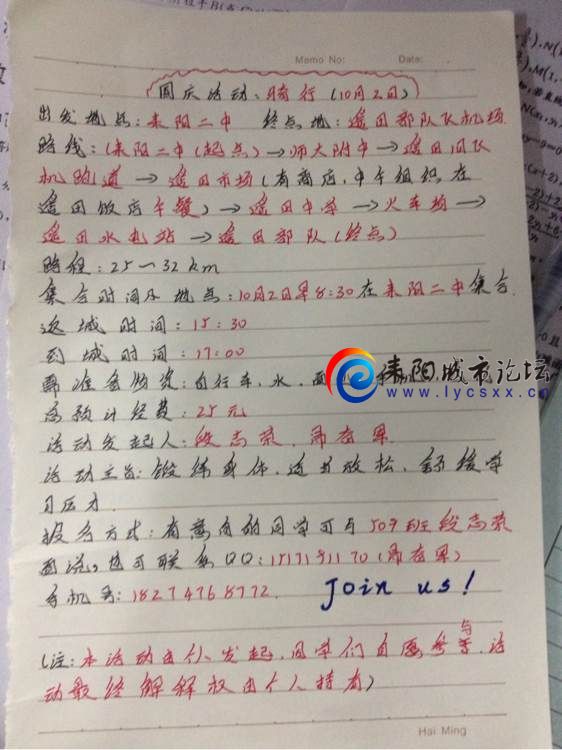 Memo No:
Date:
国庆活动、骑行（10月2日）
出发地点：耒阳二中 终点地：遥田部队飞机场
路线：（耒阳二中（起点）→师大附中→遥田旧飞
机跑道→遥田市场（有商店，中午组织在
遥田饭店午餐）→遥田中学→火车场→
遥田水电站→遥田部队（终点）
路程：25—32km
集合时间及地点：10月2日早8:30在耒阳二中集合.
返城时间：15:30
到城时间：17:00
需准备物资：自行车、水、面
总预计经费：25元
活动发起人：段志荣、
活动主旨：锻炼身体，适当放松，舒缓学
习压力
报名方式：有意向的同学可与509班段志荣
直说，也可联系QQ:
手机号：18274768772.
Join us!
（注：本活动由个人发起，同学们自愿参与，活
动最终解释权由个人持有）
Hai Ming
耒阳城市论坛
www.lycsxx.cn